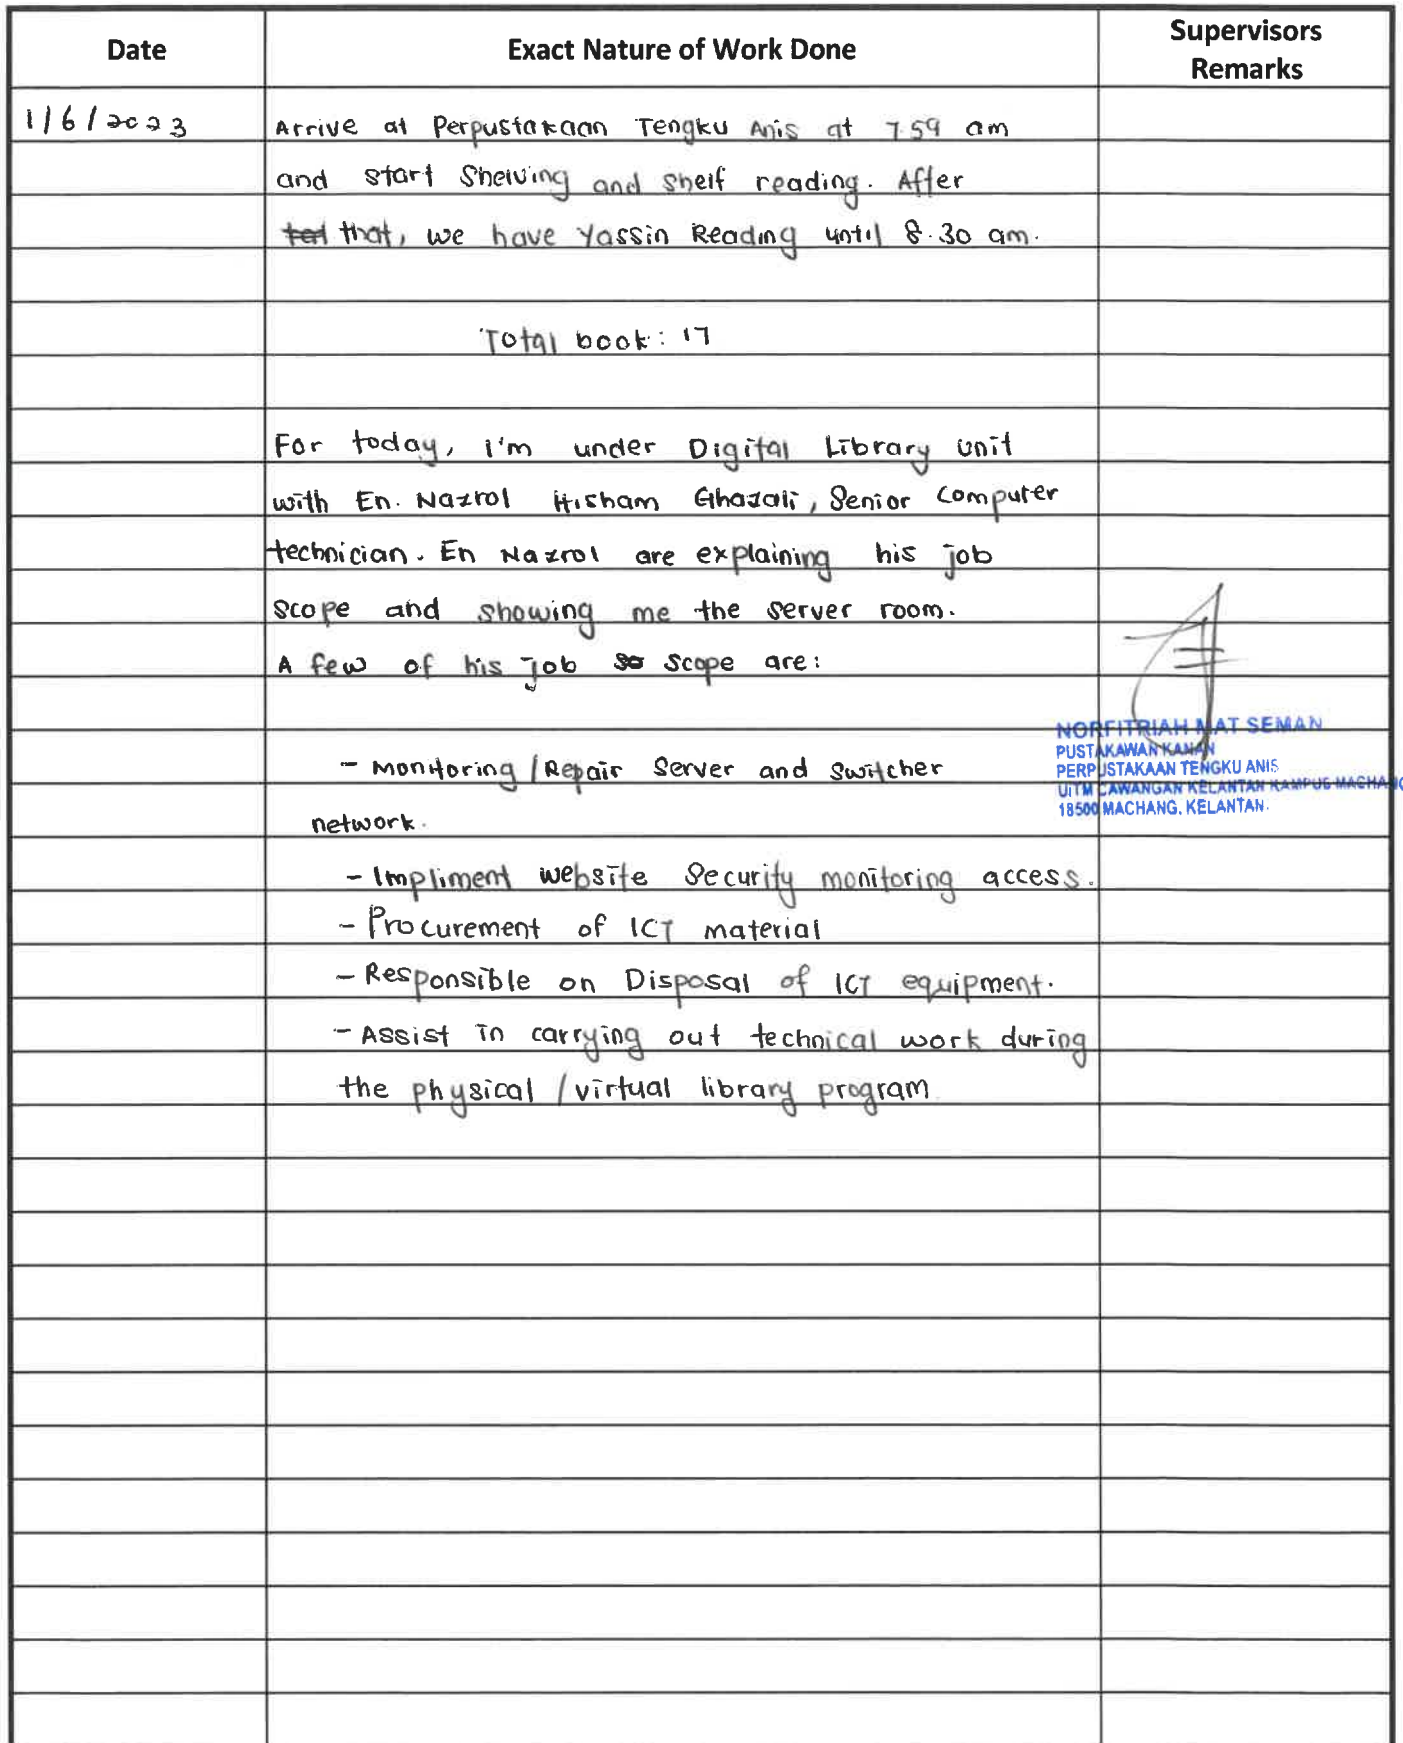 Date Exact Nature of Work Done Supervisors Remarks
1/6/2023 Arrive at Perpustakaan Tengku Anis at 7.59 am
and start Shelving and shelf reading. After
that, we have Yassin Reading until 8.30 am.
Total book: 17
For today, i'm under Digital Library unit
with En. Nazrol Hisham Ghazali, Senior Computer
technician. En Nazrol are explaining his job
scope and showing me the server room.
A few of his job scope are:
NORFITRIAH MAT SEMAN
PUSTAKAWAN KANAN
PERPUSTAKAAN TENGKU ANIS
UITM CAWANGAN KELANTAN KAMPUS MACHANG
18500 MACHANG, KELANTAN.
- Monitoring / Repair Server and Switcher
network.
- Impliment website Security monitoring access.
- Procurement of ICT material
- Responsible on Disposal of ICT equipment.
- Assist in carrying out technical work during
the physical / virtual library program